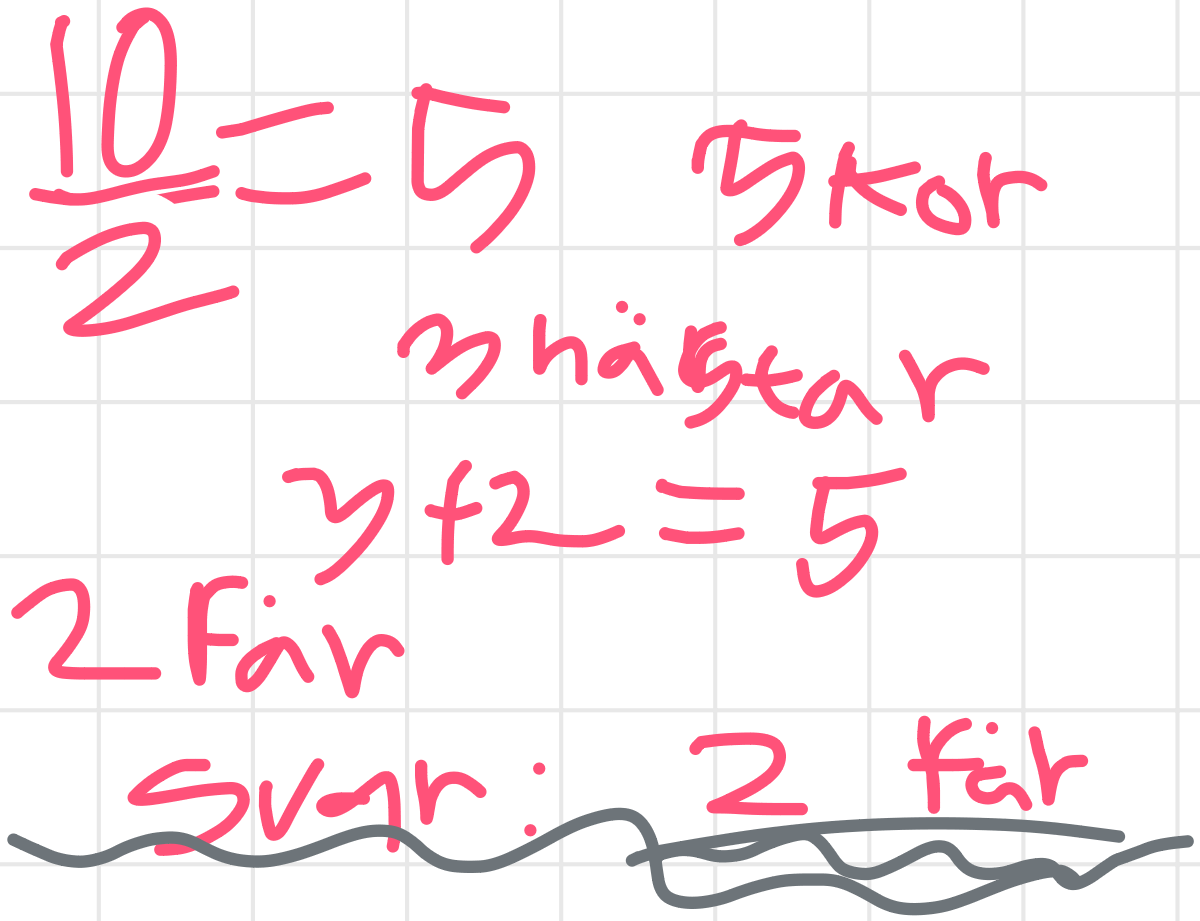 10/2 = 5 5 kor
3 hästar
3 + 2 = 5
2 Får
Svar: 2 får